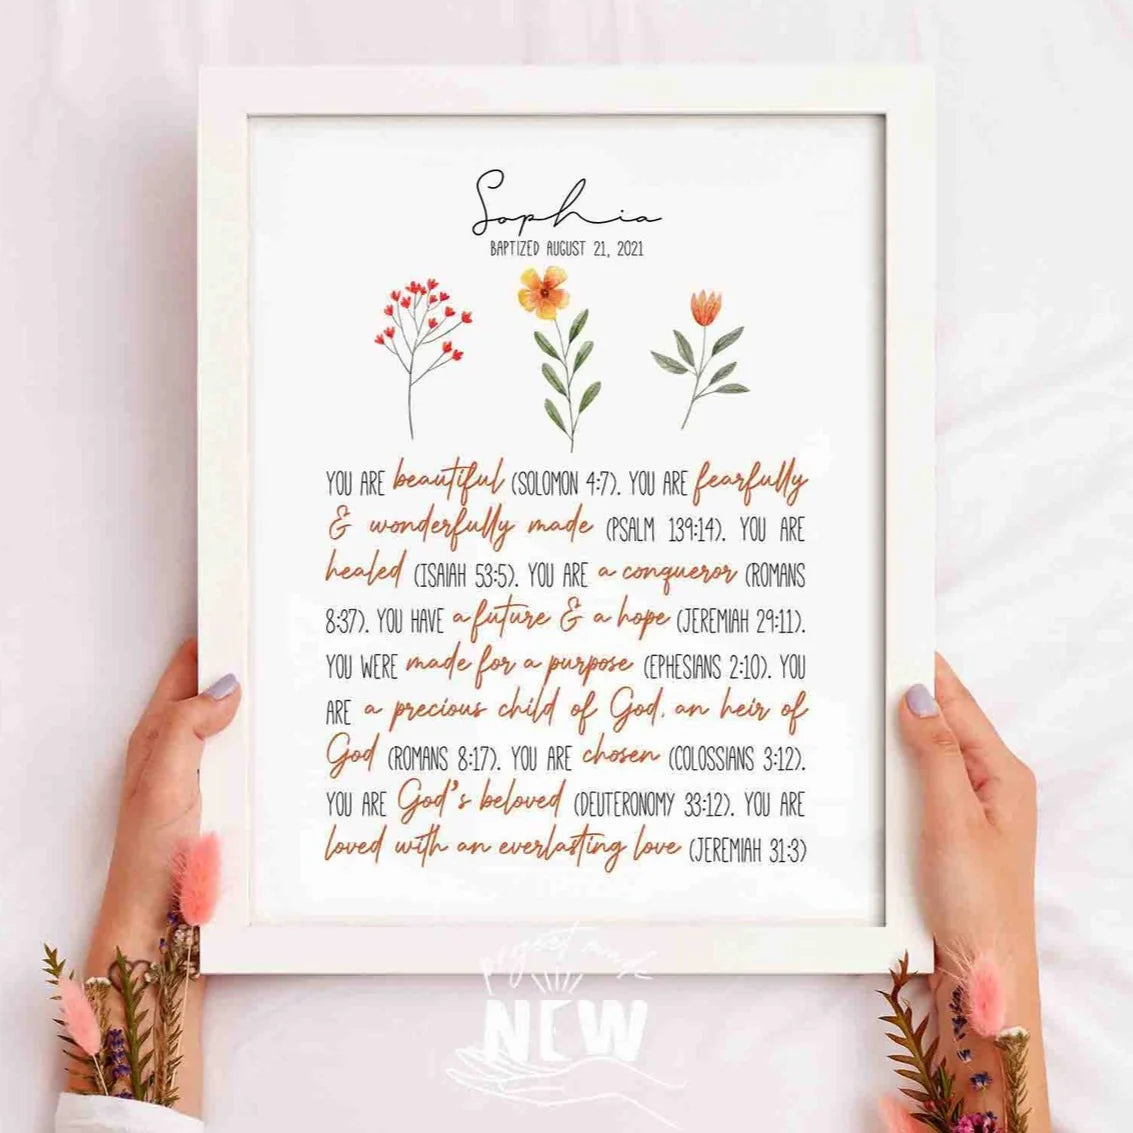 Sophia
BAPTIZED AUGUST 21, 2021
YOU ARE beautiful (SOLOMON 4:7). YOU ARE fearfully
& wonderfully made (PSALM 139:14). YOU ARE
healed (ISAIAH 53:5). YOU ARE a conqueror (ROMANS
8:37). YOU HAVE a future & a hope (JEREMIAH 29:11).
YOU WERE made for a purpose (EPHESIANS 2:10). YOU
ARE a precious child of God, an heir of
God (ROMANS 8:17). YOU ARE chosen (COLOSSIANS 3:12).
YOU ARE God's beloved (DEUTERONOMY 33:12). YOU ARE
loved with an everlasting love (JEREMIAH 31:3)
project made
NEW